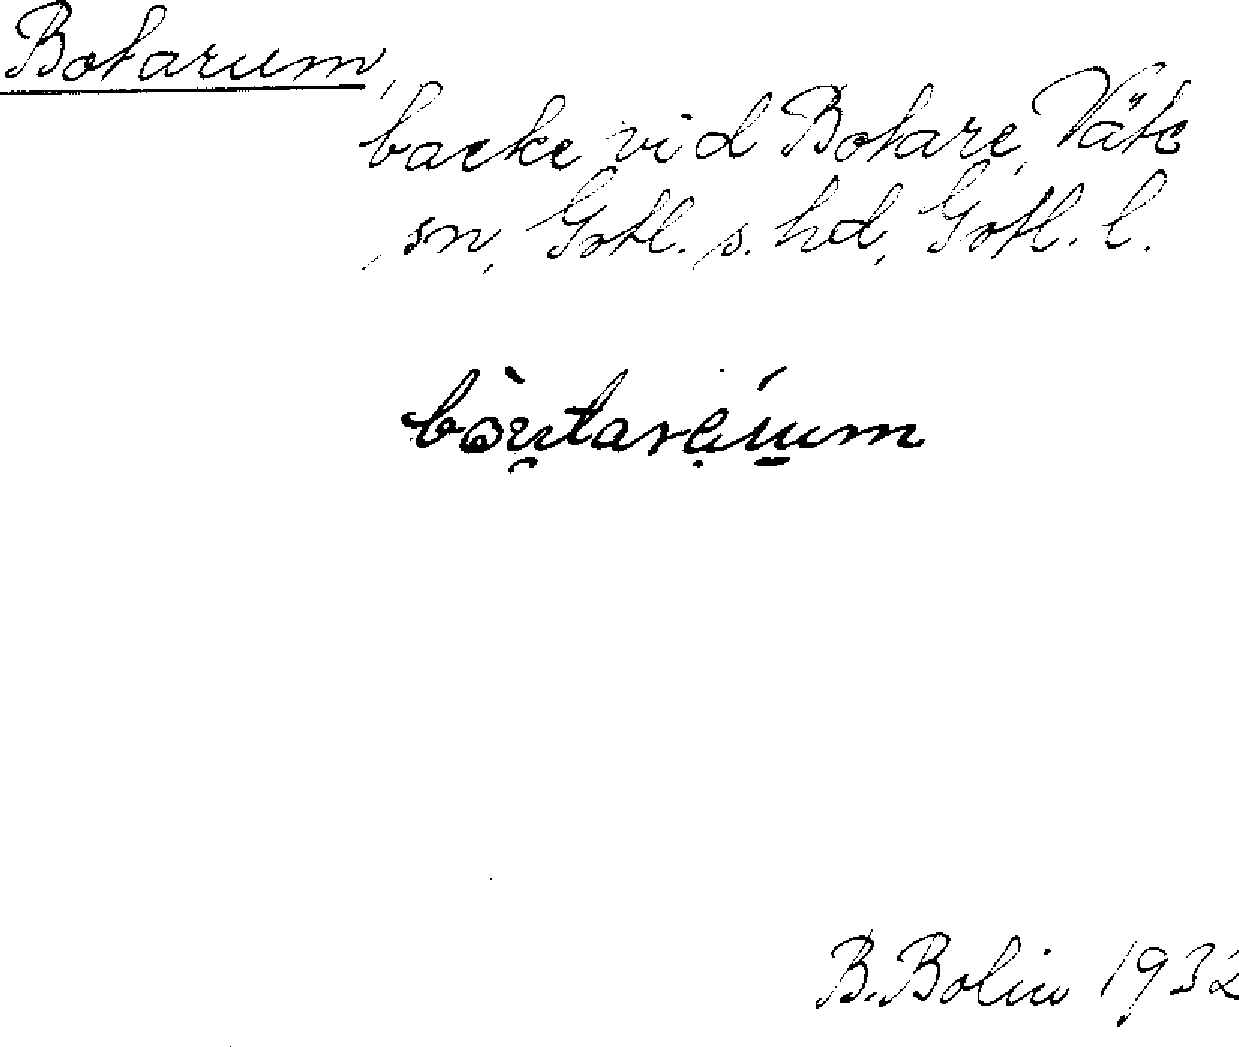 Botarum,
backe vid Botare, Väte
sn, Gotl. s. hd, Gotl. l.
B. Bolin 1932